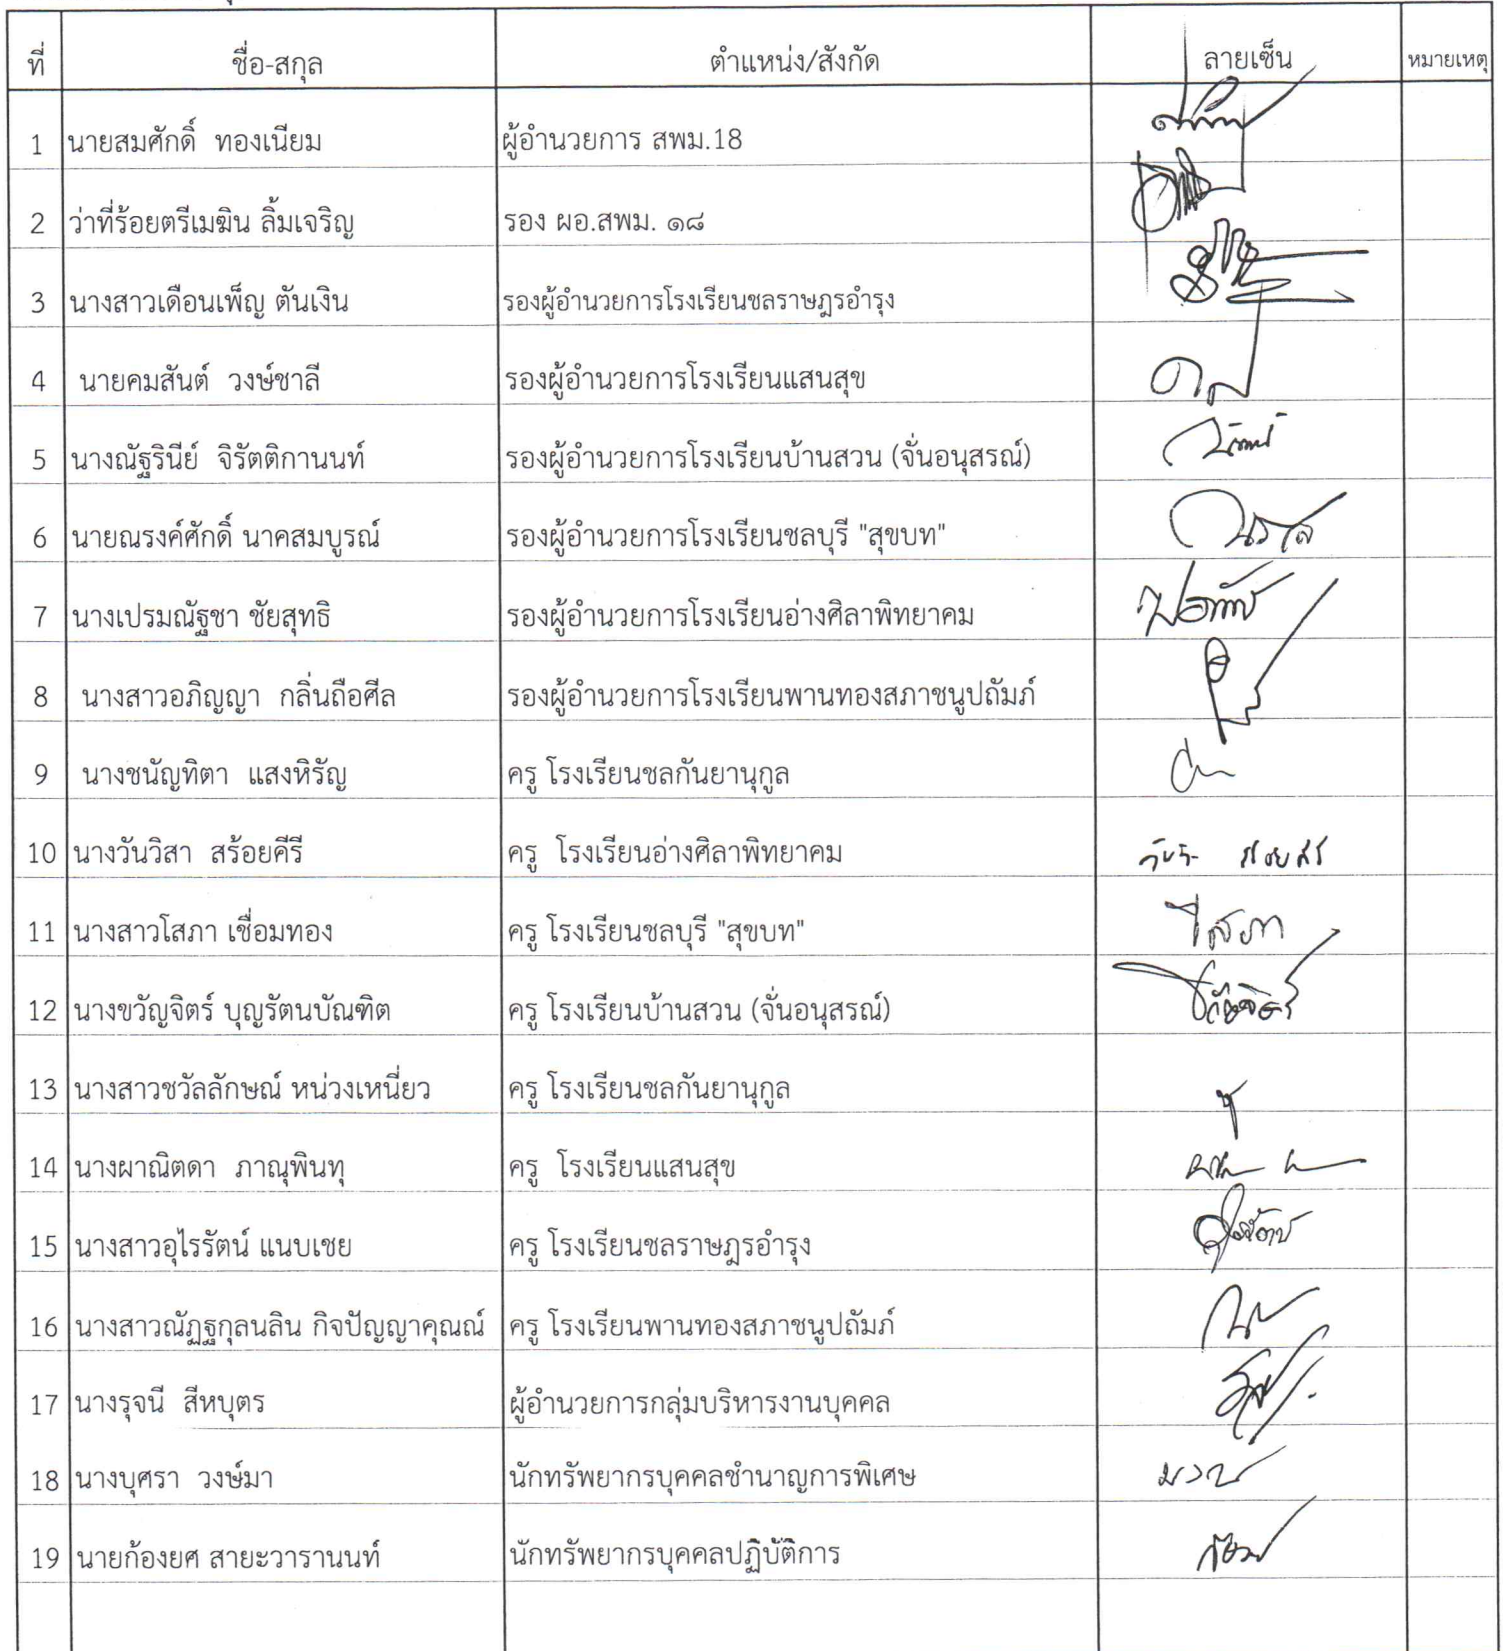 ที่ ชื่อ-สกุล ตำแหน่ง/สังกัด ลายเซ็น หมายเหตุ
1 นายสมศักดิ์ ทองเนียม ผู้อำนวยการ สพม.18
2 ว่าที่ร้อยตรีเมฆิน ลิ้มเจริญ รอง ผอ.สพม. ๑๘
3 นางสาวเดือนเพ็ญ ตันเงิน รองผู้อำนวยการโรงเรียนชลราษฎรอำรุง
4 นายคมสันต์ วงษ์ชาลี รองผู้อำนวยการโรงเรียนแสนสุข
5 นางณัฐรินีย์ จิรัตติกานนท์ รองผู้อำนวยการโรงเรียนบ้านสวน (จั่นอนุสรณ์)
6 นายณรงค์ศักดิ์ นาคสมบูรณ์ รองผู้อำนวยการโรงเรียนชลบุรี "สุขบท"
7 นางเปรมณัฐชา ชัยสุทธิ รองผู้อำนวยการโรงเรียนอ่างศิลาพิทยาคม
8 นางสาวอภิญญา กลิ่นถือศีล รองผู้อำนวยการโรงเรียนพานทองสภาชนูปถัมภ์
9 นางชนัญทิตา แสงหิรัญ ครู โรงเรียนชลกันยานุกูล
10 นางวันวิสา สร้อยคีรี ครู โรงเรียนอ่างศิลาพิทยาคม
11 นางสาวโสภา เชื่อมทอง ครู โรงเรียนชลบุรี "สุขบท" โสภา
12 นางขวัญจิตร์ บุญรัตนบัณฑิต ครู โรงเรียนบ้านสวน (จั่นอนุสรณ์)
13 นางสาวชวัลลักษณ์ หน่วงเหนี่ยว ครู โรงเรียนชลกันยานุกูล
14 นางผาณิตดา ภาณุพินทุ ครู โรงเรียนแสนสุข
15 นางสาวอุไรรัตน์ แนบเชย ครู โรงเรียนชลราษฎรอำรุง
16 นางสาวณัฏฐกุลนลิน กิจปัญญาคุณณ์ ครู โรงเรียนพานทองสภาชนูปถัมภ์
17 นางรุจนี สีหบุตร ผู้อำนวยการกลุ่มบริหารงานบุคคล
18 นางบุศรา วงษ์มา นักทรัพยากรบุคคลชำนาญการพิเศษ
19 นายก้องยศ สายะวารานนท์ นักทรัพยากรบุคคลปฏิบัติการ